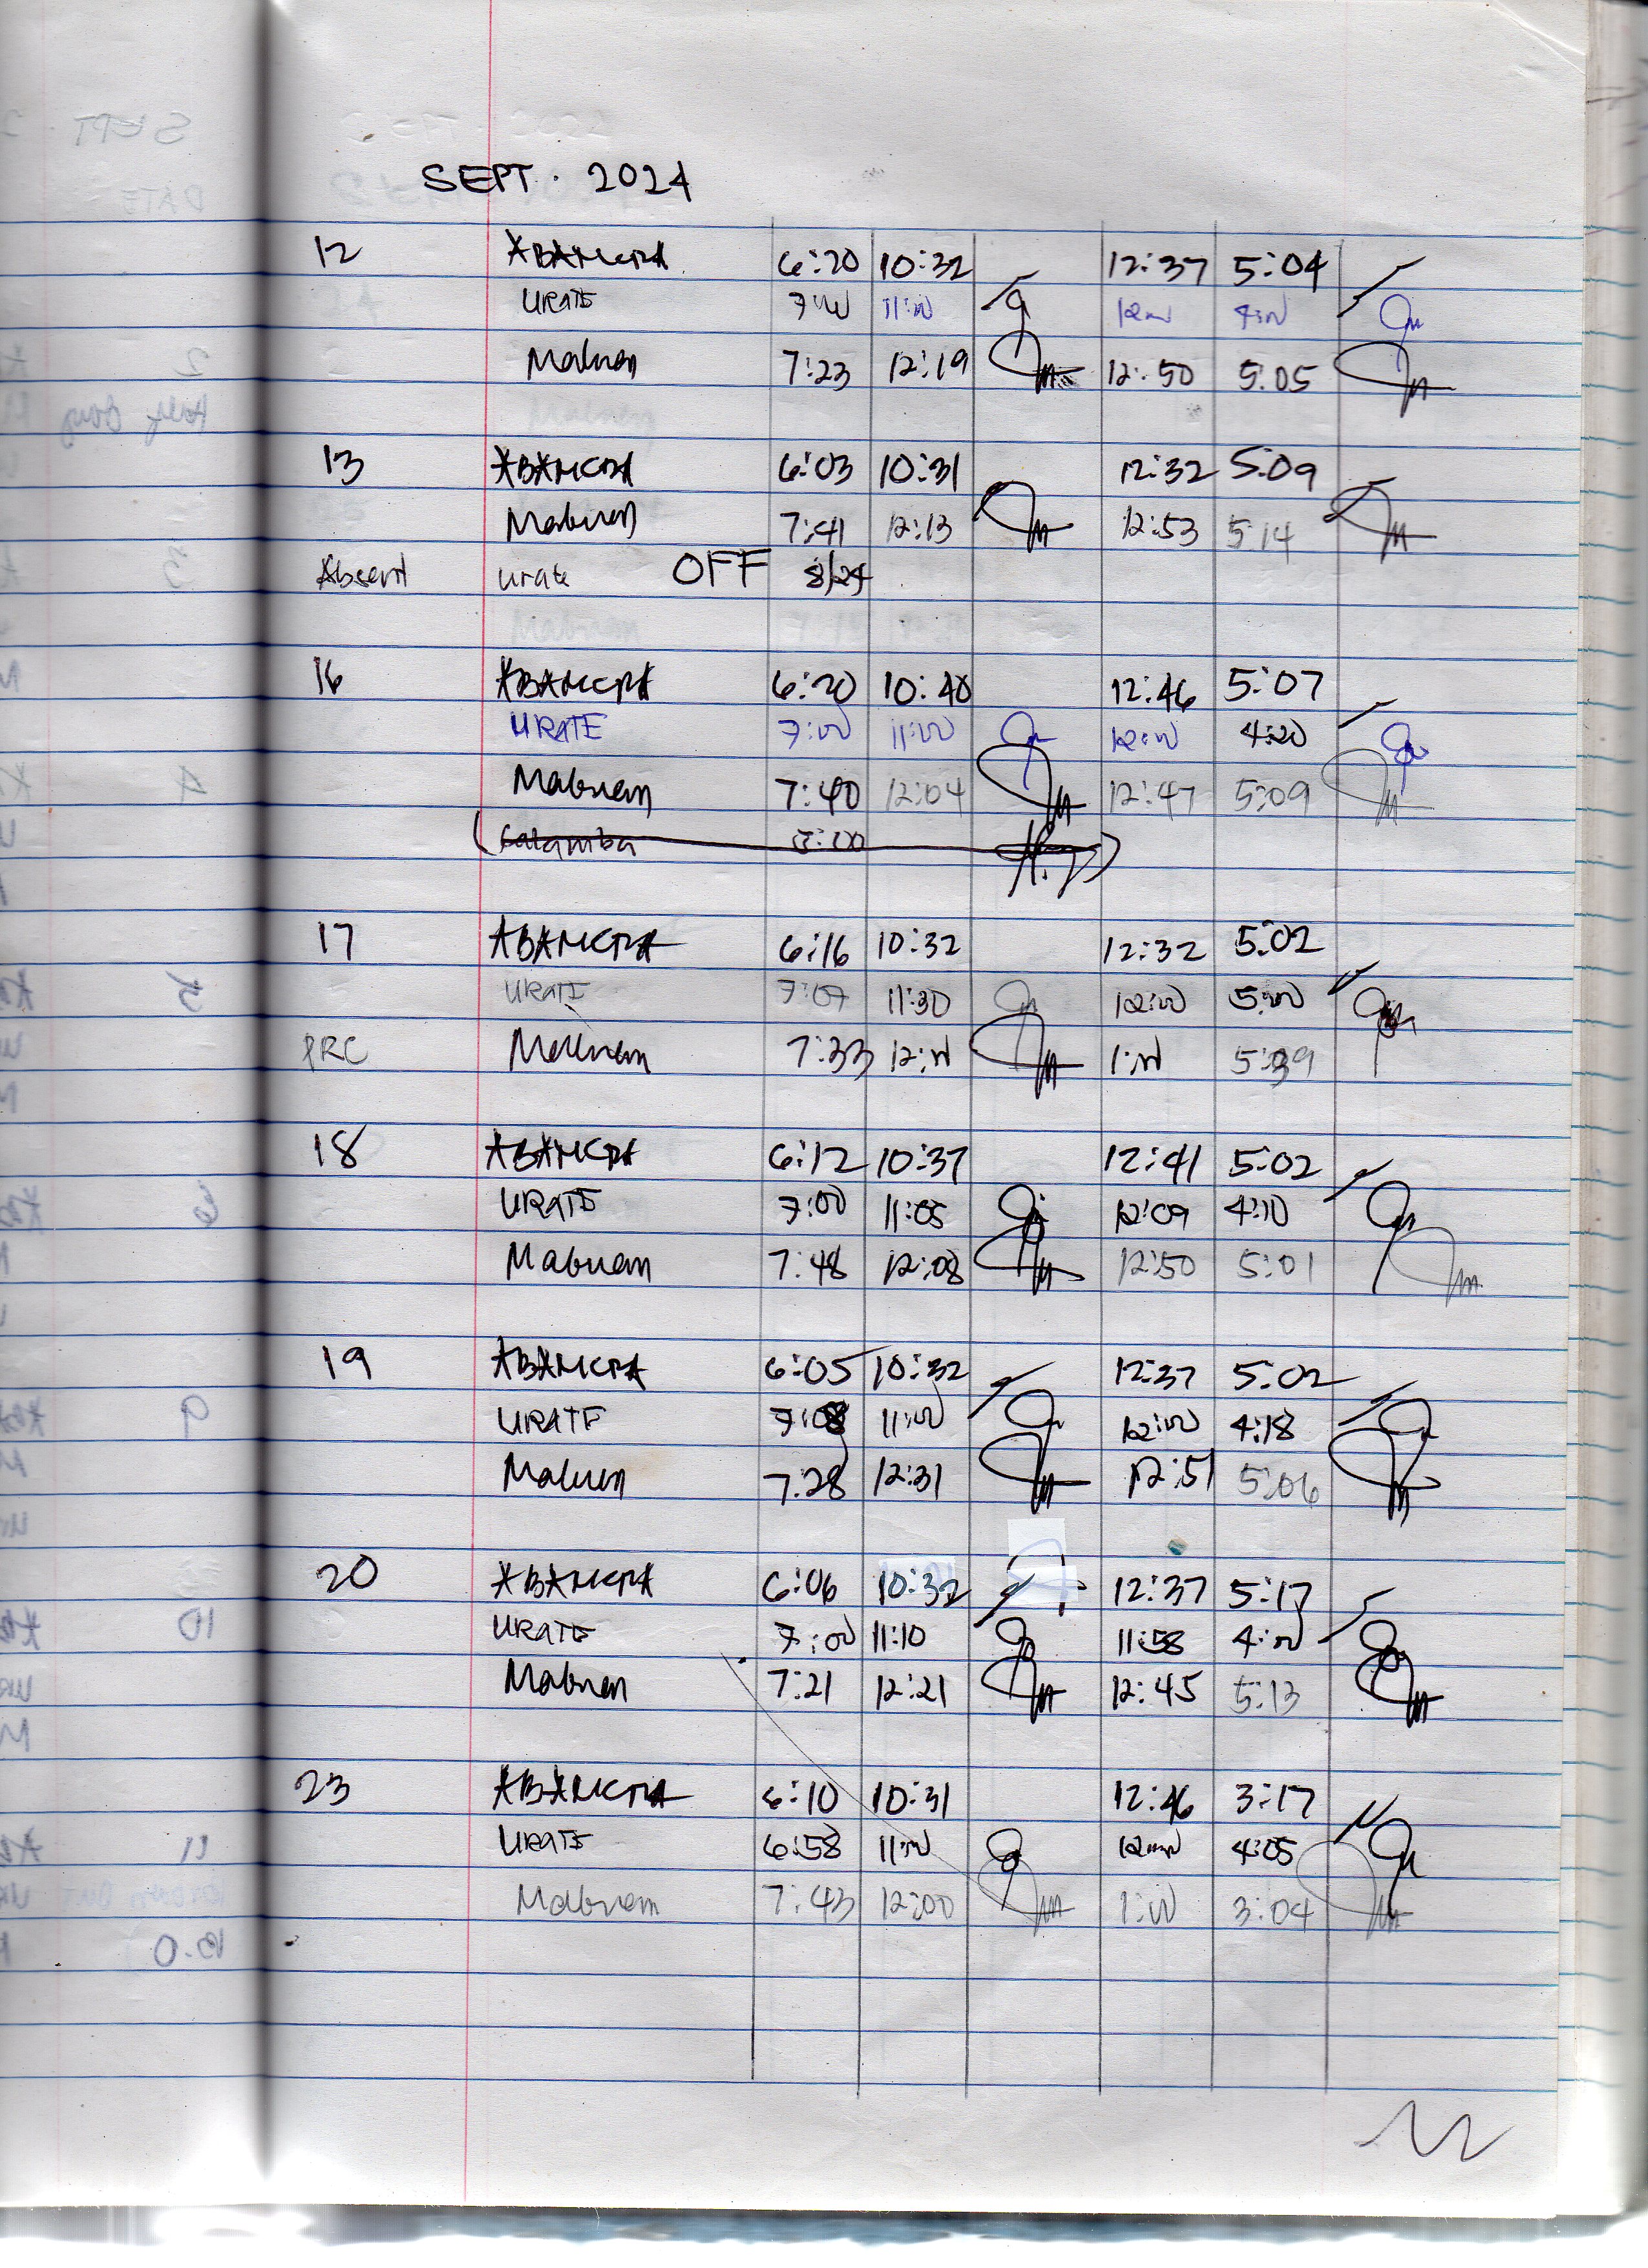 SEPT. 2024
12 ABANCIA 6:20 10:32 12:37 5:04
URATE 7:00 11:00 12:00 4:00
Mabuan 7:23 12:19 12:50 5:05
13 ABANCIA 6:03 10:31 12:32 5:09
Mabuan 7:41 12:13 12:53 5:14
Absent urate OFF 8/24
16 ABANCIA 6:20 10:40 12:46 5:07
URATE 7:00 11:00 12:00 4:20
Mabuan 7:40 12:04 12:47 5:09
(Calamba
17 ABANCIA 6:16 10:32 12:32 5:02
URATE 7:07 11:30 12:00 5:00
PRC Mabuan 7:33 12:00 1:00 5:39
18 ABANCIA 6:12 10:37 12:41 5:02
URATE 7:00 11:05 12:09 4:10
Mabuan 7:48 12:08 12:50 5:01
19 ABANCIA 6:05 10:32 12:37 5:02
URATE 7:08 11:00 12:00 4:18
Mabuan 7:28 12:31 12:51 5:06
20 ABANCIA 6:06 10:32 12:37 5:17
URATE 7:00 11:10 11:58 4:00
Mabuan 7:21 12:21 12:45 5:13
23 ABANCIA 6:10 10:31 12:46 3:17
URATE 6:58 11:00 12:00 4:05
Mabuan 7:43 12:00 1:00 3:04